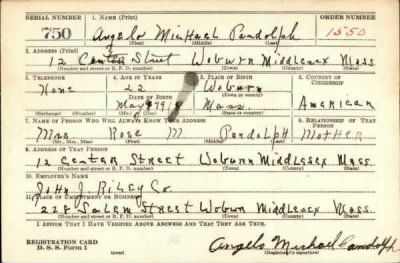 SERIAL NUMBER 1. NAME (Print) ORDER NUMBER
750 Angelo Michael Pandolph 1550
(First) (Middle) (Last)
2. ADDRESS (Print)
12 Center Street Woburn Middlesex Mass.
(Number and street or R. F. D. number) (Town) (County) (State)
3. TELEPHONE 4. AGE IN YEARS 5. PLACE OF BIRTH 6. COUNTRY OF CITIZENSHIP
None 22 Woburn
DATE OF BIRTH (Town or county)
May 1918 Mass. American
(Mo.) (Day) (Yr.) (State or country)
7. NAME OF PERSON WHO WILL ALWAYS KNOW YOUR ADDRESS 8. RELATIONSHIP OF THAT PERSON
Mrs Rose M Pandolph Mother
(Mr., Mrs., Miss) (First) (Middle) (Last)
9. ADDRESS OF THAT PERSON
12 Center Street Woburn Middlesex Mass.
(Number and street or R. F. D. number) (Town) (County) (State)
10. EMPLOYER'S NAME
John J. Riley Co.
11. PLACE OF EMPLOYMENT OR BUSINESS
228 Salem Street Woburn Middlesex Mass.
(Number and street or R. F. D. number) (Town) (County) (State)
I AFFIRM THAT I HAVE VERIFIED ABOVE ANSWERS AND THAT THEY ARE TRUE.
REGISTRATION CARD
D. S. S. Form 1 (over) Angelo Michael Pandolph
(Registrant's signature)